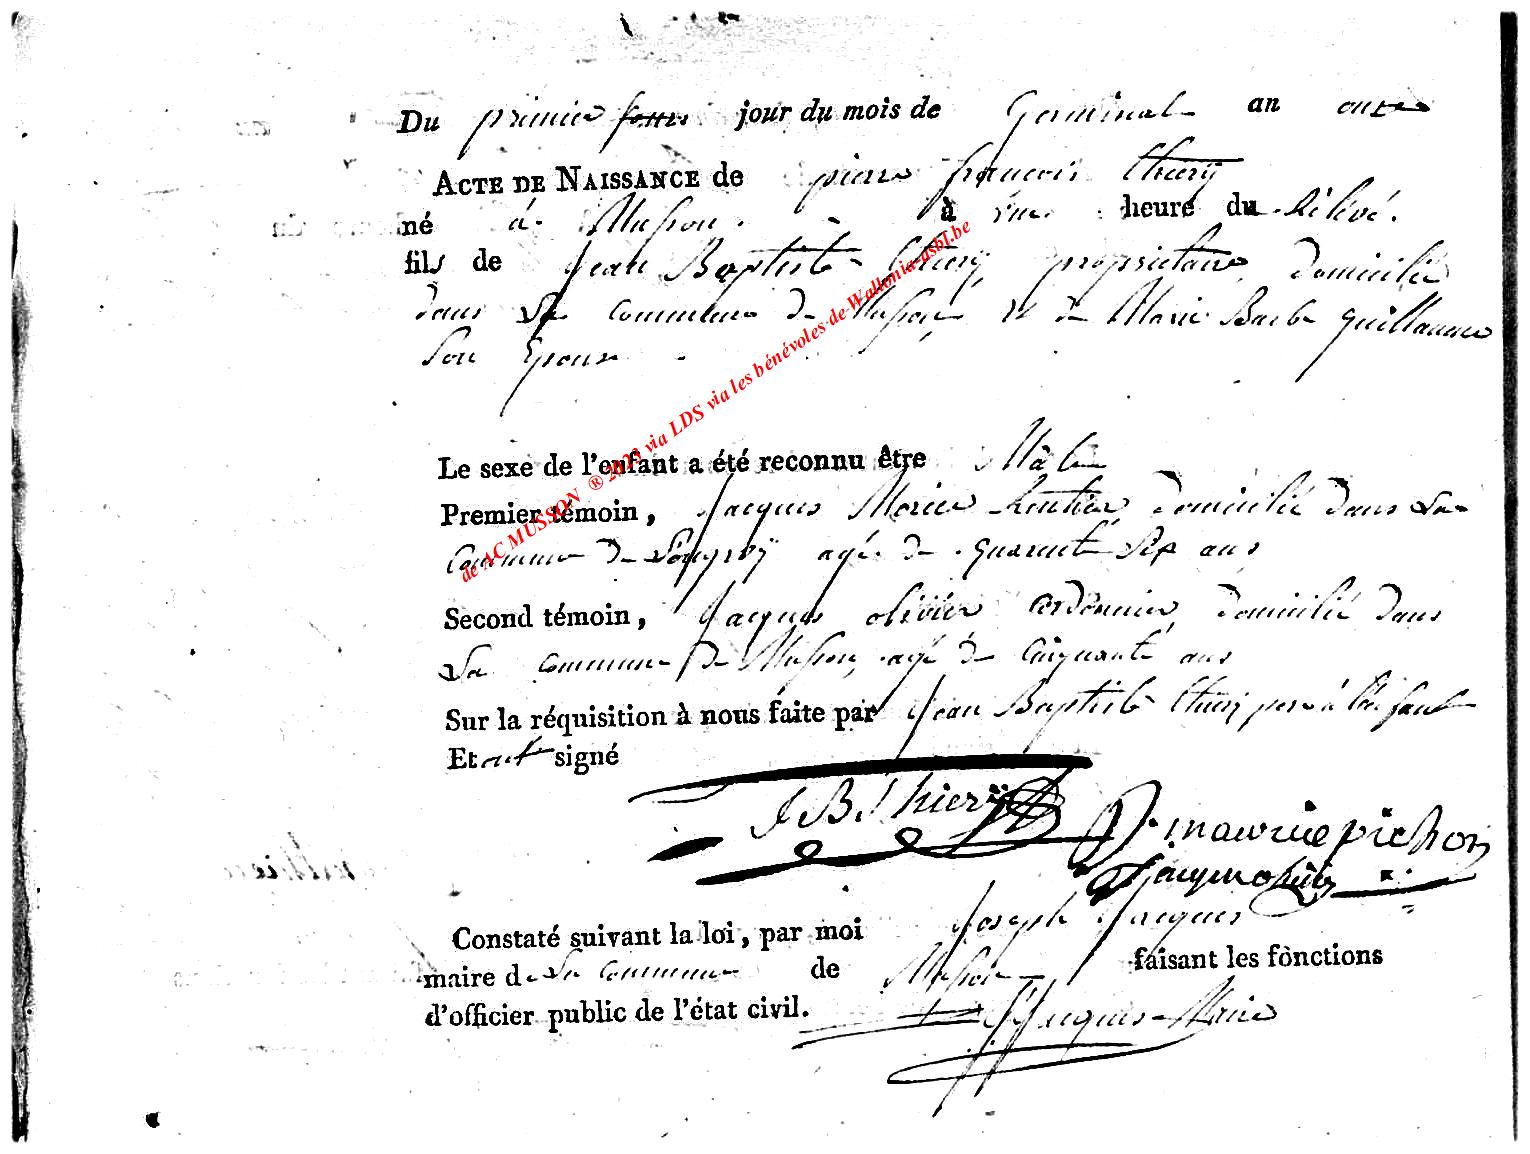 Du premier jour du mois de Germinal an onze
ACTE DE NAISSANCE de pierre françois thierÿ
né à Musson à une heure du Rélévé.
fils de Jean Baptiste thierÿ propriétaire domicilié
dans La commune de Musson, et de Marie Barbe guillaume
Son Epouse
Le sexe de l'enfant a été reconnu être Mâle
Premier témoin, Jacques Morice domicilié dans La
Commune de agé de quarente Six ans
Second témoin, Jacques olivier cordonnier domicilié dans
La commune de Musson, agé de Cinquante ans
Sur la réquisition à nous faite par Jean Baptiste thierÿ pere à L'enfant
Et ont signé
J B Thierÿ
J. mauricepichon
Constaté suivant la loi, par moi Joseph Jacques
maire de La Commune de Musson faisant les fònctions
d'officier public de l'état civil. Jacques Maire
de AC MUSSON ® 2023 via LDS via les bénévoles de Wallonia-asbl.be